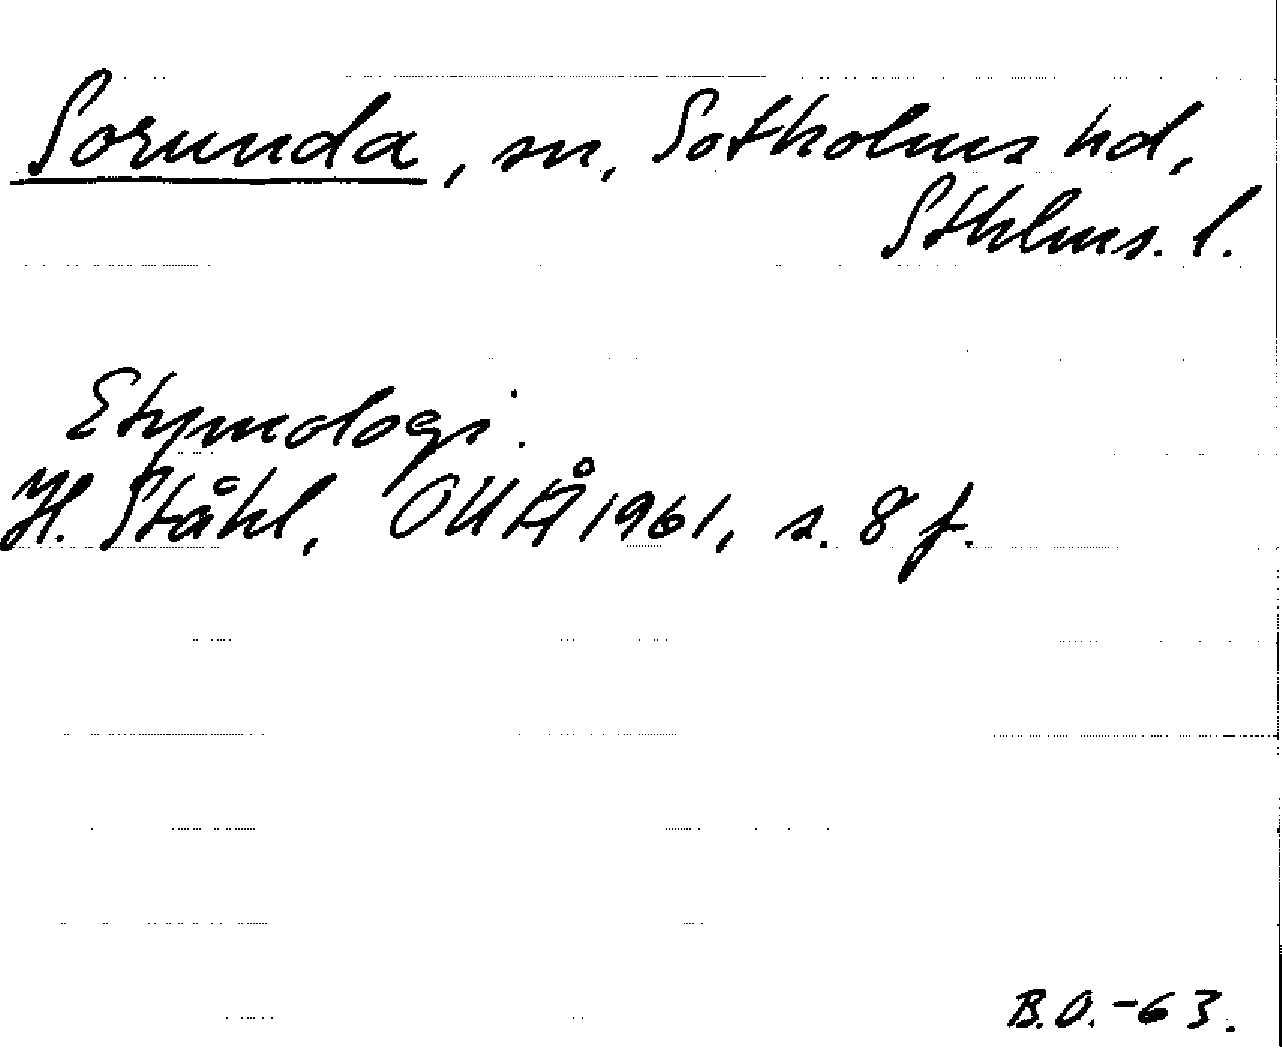 Sorunda, sn, Sotholms hd,
Sthlms. l.
Etymologi.
H. Ståhl, OUÅ 1961, s. 8 f.
B.O. -63.